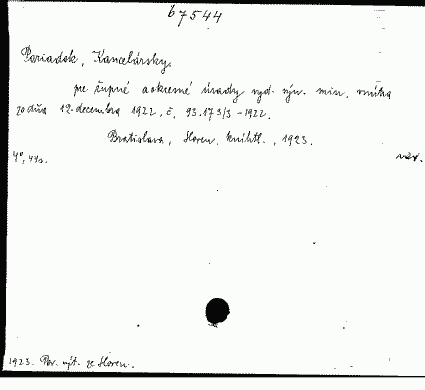 b 7544
Poriadok, Kancelársky,
pre župné a okresné úrady vyd. výn. min. vnútra
zo dňa 12. decembra 1922, č. 93.173/3-1922.
Bratislava, Sloven. kníhtl., 1923.
4°, 44s. váz.
1923. Pov. výt. ze Sloven.